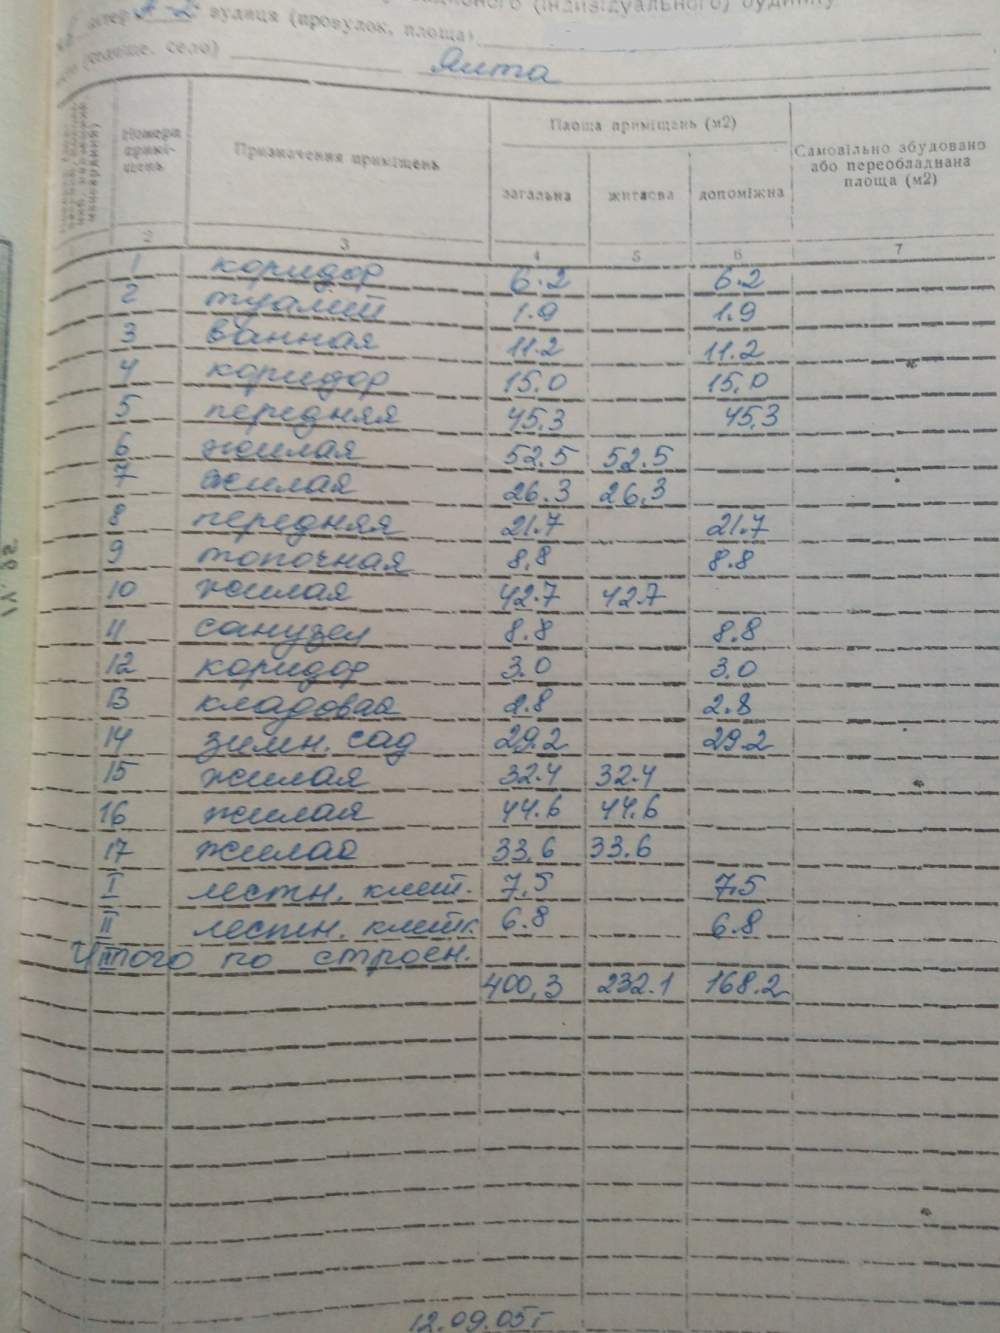 (індивідуального) будинку
літер А-2 вулиця (провулок, площа)
село) Ялта
Номера приміщень
Призначення приміщень
Площа приміщень (м2)
загальна житлова допоміжна
Самовільно збудовано або переобладнана площа (м2)
2 3 4 5 6 7
1 коридор 6.2 6.2
2 туалет 1.9 1.9
3 ванная 11.2 11.2
4 коридор 15,0 15,0
5 передняя 45,3 45,3
6 жилая 52.5 52.5
7 жилая 26.3 26,3
8 передняя 21.7 21.7
9 топочная 8,8 8.8
10 жилая 42.7 42.7
11 санузел 8.8 8.8
12 коридор 3.0 3.0
13 кладовая 2.8 2.8
14 зимн. сад 29.2 29.2
15 жилая 32.4 32.4
16 жилая 44.6 44.6
17 жилая 33,6 33.6
I лестн. клет. 7,5 7,5
II лестн. клетк. 6.8 6.8
Итого по строен.
400,3 232.1 168.2
12.09.05г